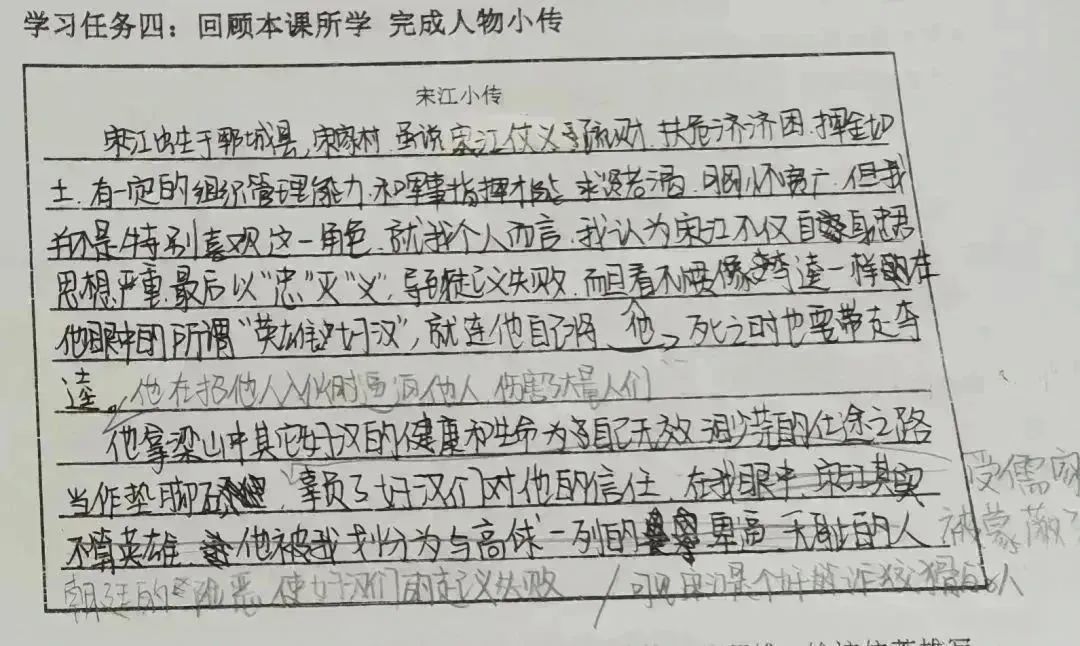 学习任务四：回顾本课所学 完成人物小传
宋江小传
宋江出生于郓城县，宋家村．虽说宋江仗义疏财．扶危济济困．挥金如
土．有一定的组织管理能力．和军事指挥才能．求贤若渴．但我
并不是特别喜欢这一角色．就我个人而言．我认为宋江不仅自身忠君
思想严重．最后以“忠”灭“义”，导致起义失败．而且看不惯像李逵一样
他眼中的所谓“英雄好汉”，就连他自己将死之时也要带走李
逵。他在招他人入伙时逼迫他人，伤害了大量人们
他拿梁山中其它好汉的健康和生命为自己无效的仕途之路
当作垫脚石，辜负了好汉们对他的信任．在我眼中．宋江其实
不算英雄．他被我划分为与高俅一列的卑逼．无耻的人
受儒家
被蒙蔽了
朝廷的险恶 使好汉们的起义失败 / 可见宋江是个奸诈狡猾的人